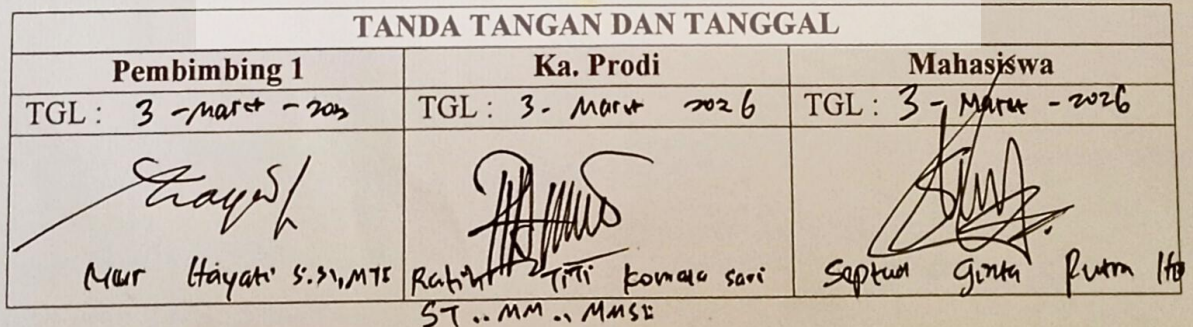 TANDA TANGAN DAN TANGGAL
Pembimbing 1 Ka. Prodi Mahasiswa
TGL : 3 - Maret - TGL : 3 - Maret 2026 TGL : 3 - Maret - 2026
Nur Hayati S.Si, MTI Ratih Titi Komala Sari Septian Ginta Putra
ST., MM., MMSI